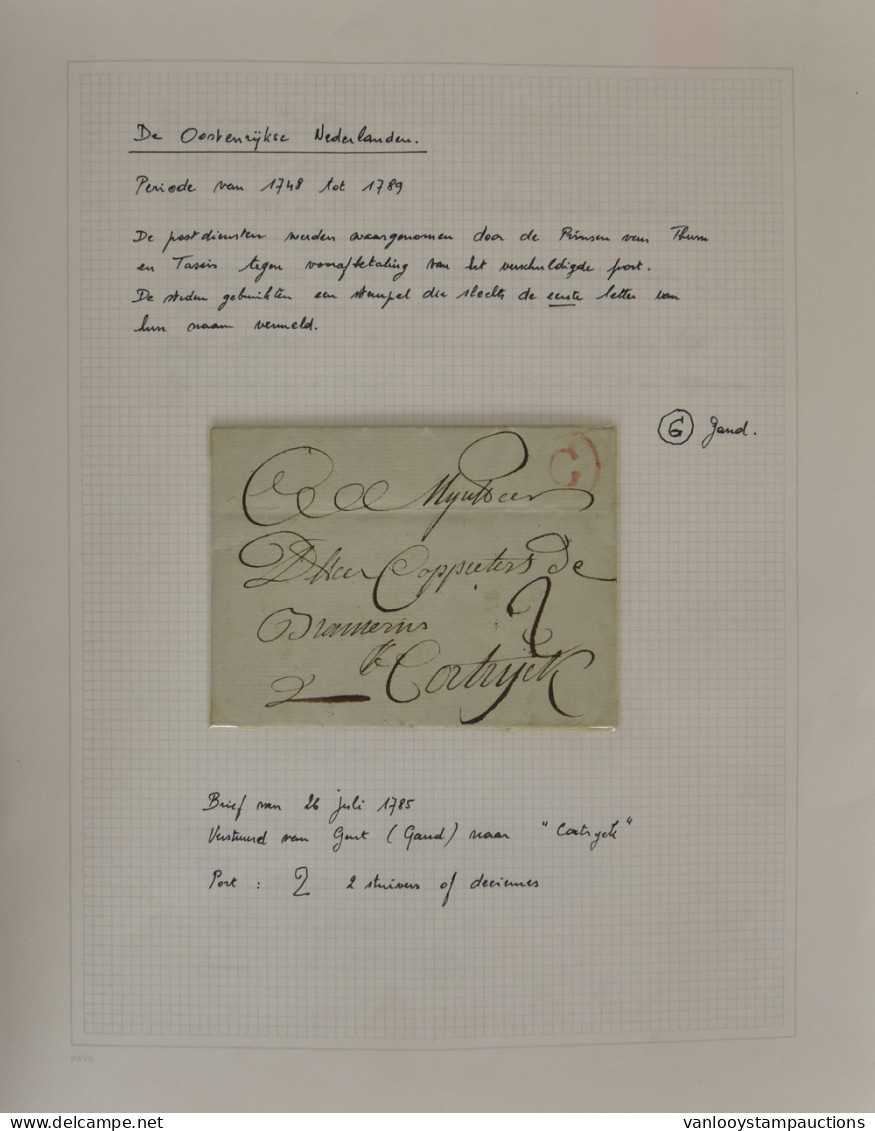 De Oostenrijkse Nederlanden.
Periode van 1748 tot 1789
De postdiensten werden waargenomen door de Prinsen van Thurn
en Tassis tegen voorafbetaling van het verschuldigde port.
De steden gebruikten een stempel die slechts de eerste letter van
hun naam vermeld.
G Gand.
G
Mynheer
Coppieters De
2
Cortryck
2
Brief van 26 juli 1785
Verstuurd van Gent (Gand) naar "Cortryck"
Port : 2 2 stuivers of deciemes
vanlooystampauctions